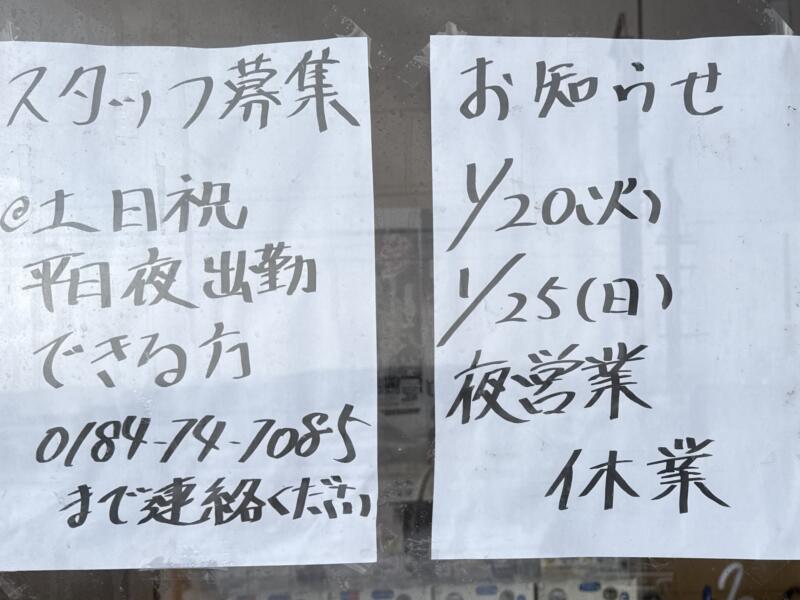 スタッフ募集
◎土日祝
平日夜出勤
できる方
0184-74-7085
まで連絡ください
お知らせ
1/20(火)
1/25(日)
夜営業
休業